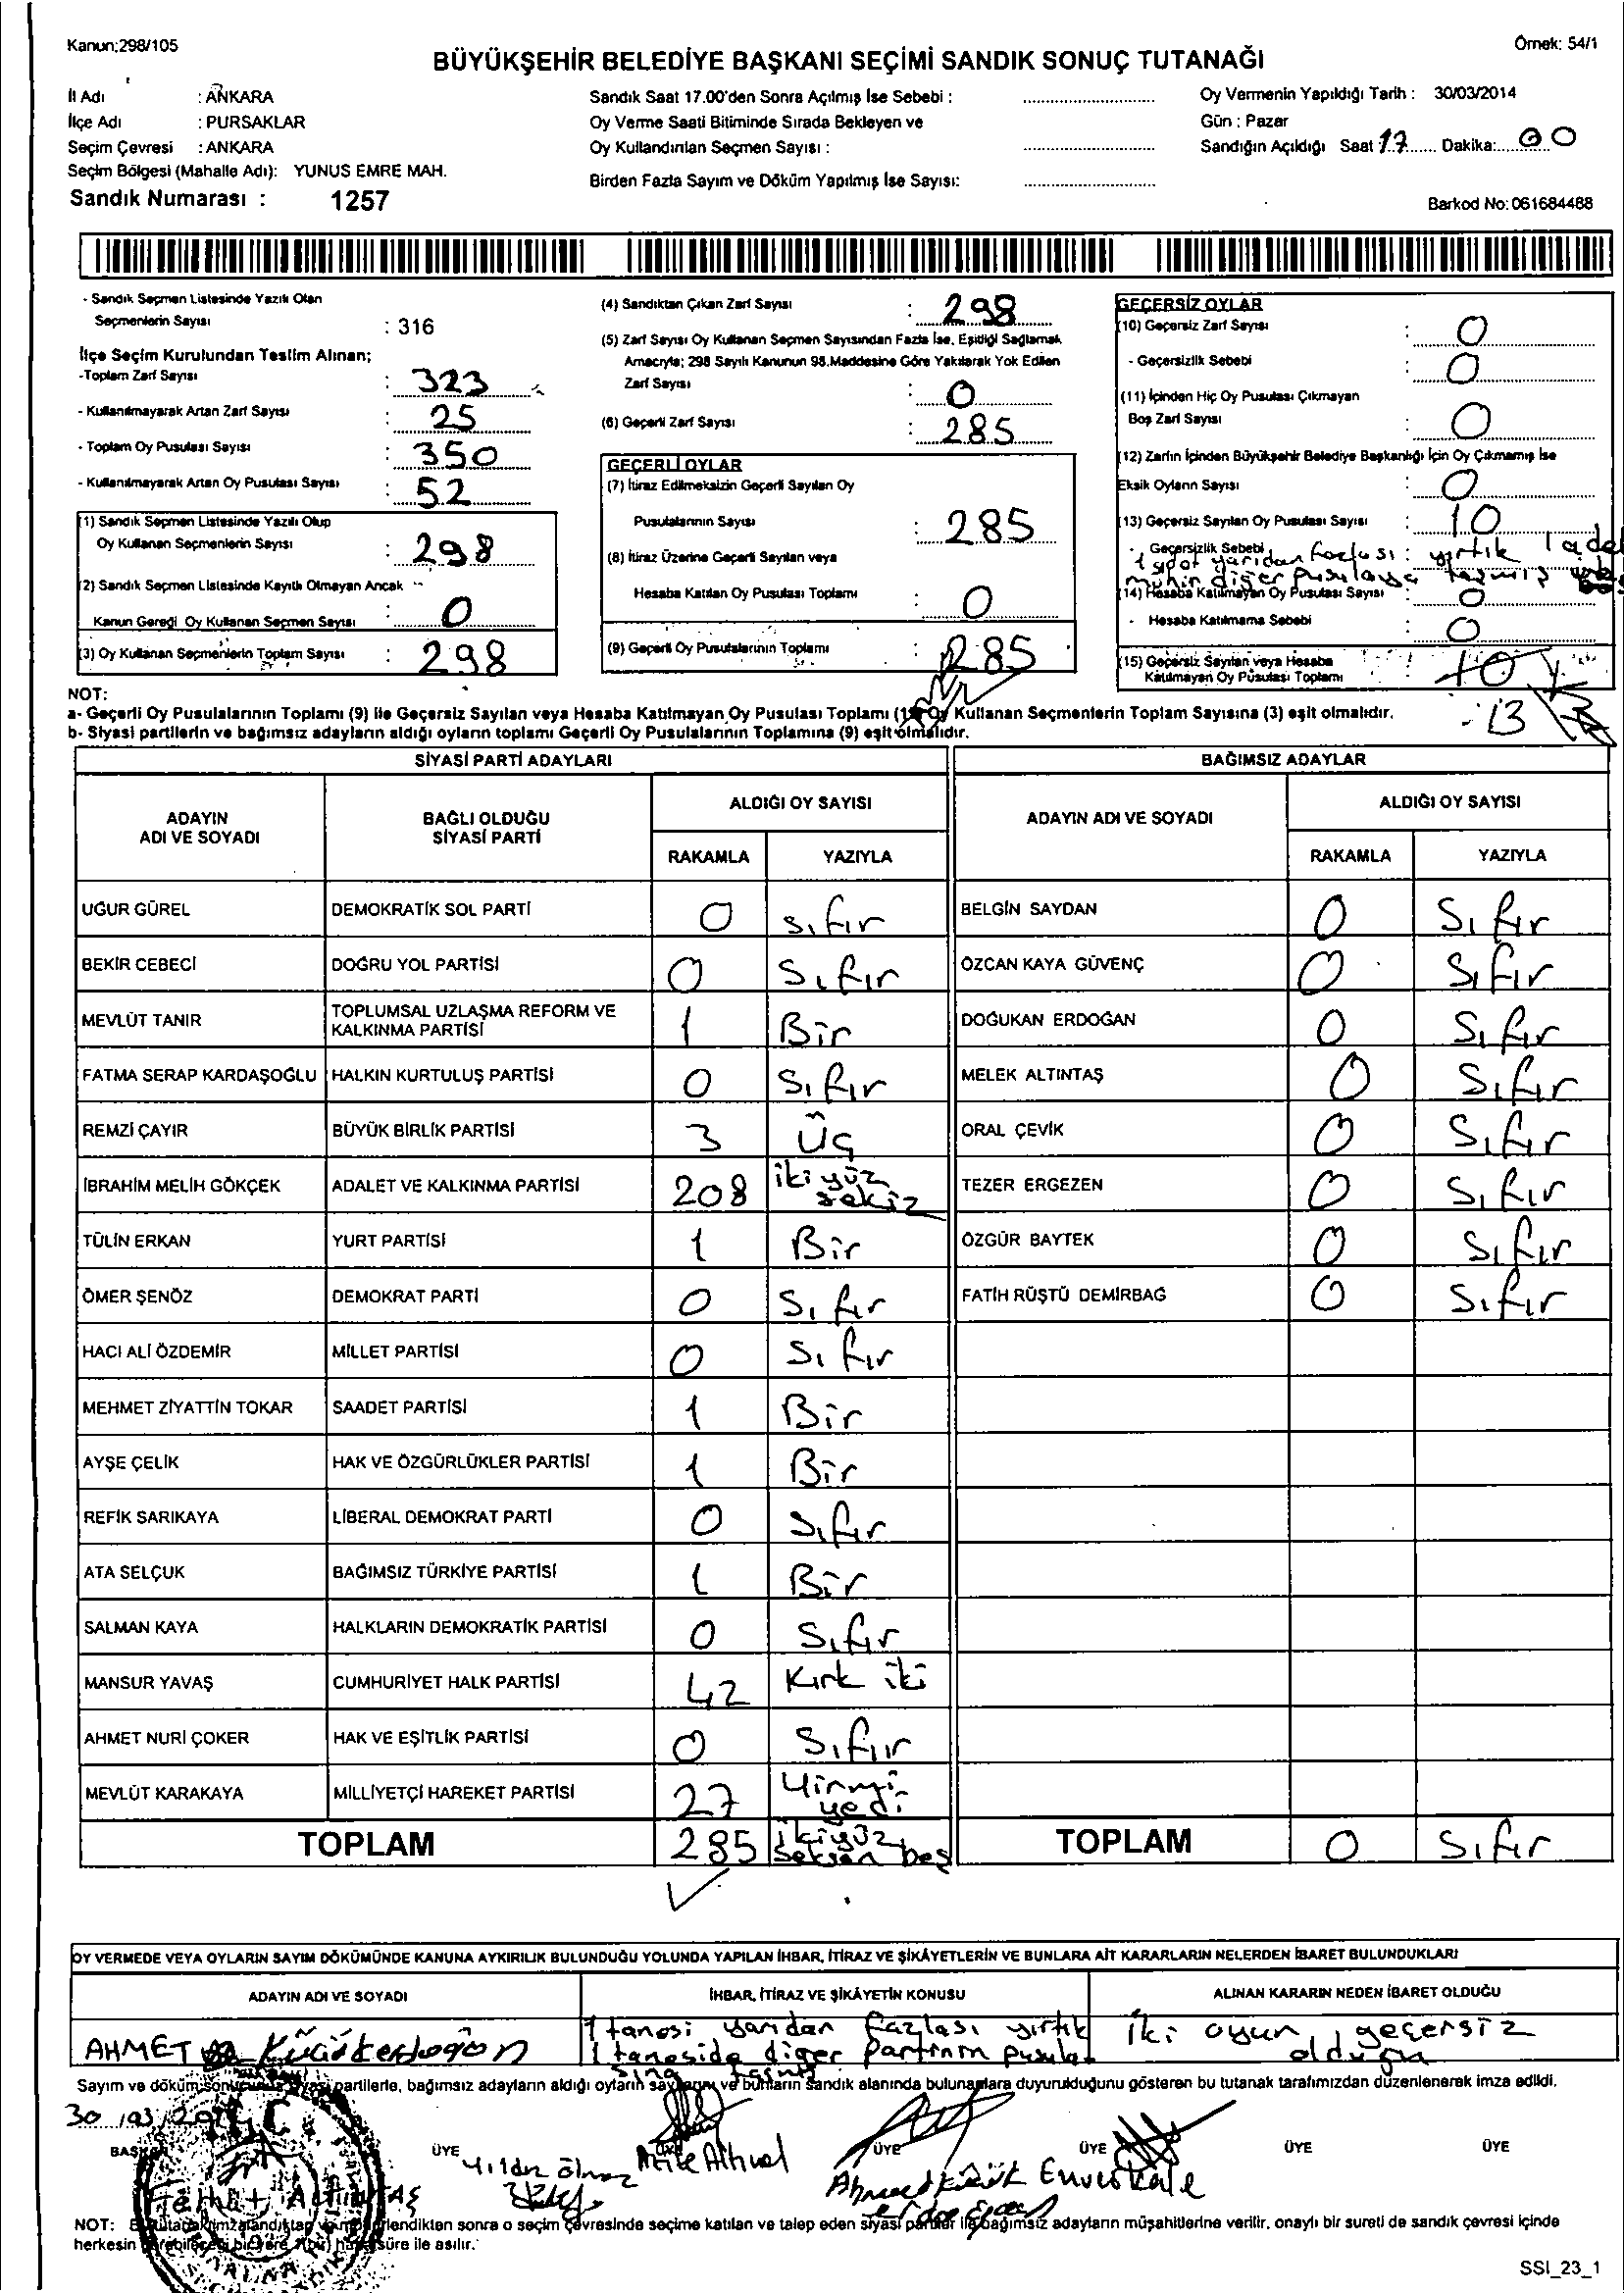 Kanun:298/105
Örnek: 54/1
BÜYÜKŞEHİR BELEDİYE BAŞKANI SEÇİMİ SANDIK SONUÇ TUTANAĞI
İl Adı : ANKARA
İlçe Adı : PURSAKLAR
Seçim Çevresi : ANKARA
Seçim Bölgesi (Mahalle Adı): YUNUS EMRE MAH.
Sandık Numarası : 1257
Sandık Saat 17.00'den Sonra Açılmış İse Sebebi :
Oy Verme Saati Bitiminde Sırada Bekleyen ve
Oy Kullandırılan Seçmen Sayısı :
Birden Fazla Sayım ve Döküm Yapılmış İse Sayısı:
Oy Vermenin Yapıldığı Tarih : 30/03/2014
Gün : Pazar
Sandığın Açıldığı Saat 17 Dakika: 00
Barkod No: 061684488
- Sandık Seçmen Listesinde Yazılı Olan
Seçmenlerin Sayısı : 316
İlçe Seçim Kurulundan Teslim Alınan;
-Toplam Zarf Sayısı : 323
- Kullanılmayarak Artan Zarf Sayısı : 25
- Toplam Oy Pusulası Sayısı : 350
- Kullanılmayarak Artan Oy Pusulası Sayısı : 52
(1) Sandık Seçmen Listesinde Yazılı Olup
Oy Kullanan Seçmenlerin Sayısı : 298
(2) Sandık Seçmen Listesinde Kayıtlı Olmayan Ancak
Kanun Gereği Oy Kullanan Seçmen Sayısı : 0
(3) Oy Kullanan Seçmenlerin Toplam Sayısı : 298
(4) Sandıktan Çıkan Zarf Sayısı : 298
(5) Zarf Sayısı Oy Kullanan Seçmen Sayısından Fazla İse, Eşitliği Sağlamak
Amacıyla; 298 Sayılı Kanunun 98.Maddesine Göre Yakılarak Yok Edilen
Zarf Sayısı : 0
(6) Geçerli Zarf Sayısı : 285
GEÇERLİ OYLAR
(7) İtiraz Edilmeksizin Geçerli Sayılan Oy
Pusulalarının Sayısı : 285
(8) İtiraz Üzerine Geçerli Sayılan veya
Hesaba Katılan Oy Pusulası Toplamı : 0
(9) Geçerli Oy Pusulalarının Toplamı : 285
GEÇERSİZ OYLAR
(10) Geçersiz Zarf Sayısı : 0
- Geçersizlik Sebebi : 0
(11) İçinden Hiç Oy Pusulası Çıkmayan
Boş Zarf Sayısı : 0
(12) Zarfın İçinden Büyükşehir Belediye Başkanlığı İçin Oy Çıkmamış İse
Eksik Oyların Sayısı : 0
(13) Geçersiz Sayılan Oy Pusulası Sayısı : 10
- Geçersizlik Sebebi : yırtık 1 adet
yarıdan fazlası
mühür diğer pusulaya taşmış
(14) Hesaba Katılmayan Oy Pusulası Sayısı : 0
- Hesaba Katılmama Sebebi : 0
(15) Geçersiz Sayılan veya Hesaba
Katılmayan Oy Pusulası Toplamı : 10
13
NOT:
a- Geçerli Oy Pusulalarının Toplamı (9) ile Geçersiz Sayılan veya Hesaba Katılmayan Oy Pusulası Toplamı (15) Oy Kullanan Seçmenlerin Toplam Sayısına (3) eşit olmalıdır.
b- Siyasi partilerin ve bağımsız adayların aldığı oyların toplamı Geçerli Oy Pusulalarının Toplamına (9) eşit olmalıdır.
SİYASİ PARTİ ADAYLARI
ADAYIN ADI VE SOYADI BAĞLI OLDUĞU SİYASİ PARTİ ALDIĞI OY SAYISI
RAKAMLA YAZIYLA
UĞUR GÜREL DEMOKRATİK SOL PARTİ 0 sıfır
BEKİR CEBECİ DOĞRU YOL PARTİSİ 0 Sıfır
MEVLÜT TANIR TOPLUMSAL UZLAŞMA REFORM VE KALKINMA PARTİSİ 1 Bir
FATMA SERAP KARDAŞOĞLU HALKIN KURTULUŞ PARTİSİ 0 Sıfır
REMZİ ÇAYIR BÜYÜK BİRLİK PARTİSİ 3 Üç
İBRAHİM MELİH GÖKÇEK ADALET VE KALKINMA PARTİSİ 208 iki yüz sekiz
TÜLİN ERKAN YURT PARTİSİ 1 Bir
ÖMER ŞENÖZ DEMOKRAT PARTİ 0 Sıfır
HACI ALİ ÖZDEMİR MİLLET PARTİSİ 0 Sıfır
MEHMET ZİYATTİN TOKAR SAADET PARTİSİ 1 Bir
AYŞE ÇELİK HAK VE ÖZGÜRLÜKLER PARTİSİ 1 Bir
REFİK SARIKAYA LİBERAL DEMOKRAT PARTİ 0 Sıfır
ATA SELÇUK BAĞIMSIZ TÜRKİYE PARTİSİ 1 Bir
SALMAN KAYA HALKLARIN DEMOKRATİK PARTİSİ 0 Sıfır
MANSUR YAVAŞ CUMHURİYET HALK PARTİSİ 42 Kırk iki
AHMET NURİ ÇOKER HAK VE EŞİTLİK PARTİSİ 0 Sıfır
MEVLÜT KARAKAYA MİLLİYETÇİ HAREKET PARTİSİ 27 Yirmi yedi
TOPLAM 285 ikiyüz seksen beş
BAĞIMSIZ ADAYLAR
ADAYIN ADI VE SOYADI ALDIĞI OY SAYISI
RAKAMLA YAZIYLA
BELGİN SAYDAN 0 Sıfır
ÖZCAN KAYA GÜVENÇ 0 Sıfır
DOĞUKAN ERDOĞAN 0 Sıfır
MELEK ALTINTAŞ 0 Sıfır
ORAL ÇEVİK 0 Sıfır
TEZER ERGEZEN 0 Sıfır
ÖZGÜR BAYTEK 0 Sıfır
FATİH RÜŞTÜ DEMİRBAĞ 0 Sıfır
TOPLAM 0 Sıfır
OY VERMEDE VEYA OYLARIN SAYIM DÖKÜMÜNDE KANUNA AYKIRILIK BULUNDUĞU YOLUNDA YAPILAN İHBAR, İTİRAZ VE ŞİKÂYETLERİN VE BUNLARA AİT KARARLARIN NELERDEN İBARET BULUNDUKLARI
ADAYIN ADI VE SOYADI İHBAR, İTİRAZ VE ŞİKÂYETİN KONUSU ALINAN KARARIN NEDEN İBARET OLDUĞU
AHMET Küçükerdoğan
1 tanesi yarıdan fazlası yırtık
1 taneside diğer Partinin pusula
sına taşmış
iki oyun geçersiz
olduğu
Sayım ve döküm sonucunda siyasi partilerle, bağımsız adayların aldığı oyların sayılarını ve bunların sandık alanında bulunanlara duyurulduğunu gösteren bu tutanak tarafımızdan düzenlenerek imza edildi.
30/03/2014
BAŞKAN ÜYE ÜYE ÜYE ÜYE ÜYE ÜYE
NOT: Bu tutanak imzalandıktan ve mühürlendikten sonra o seçim çevresinde seçime katılan ve talep eden siyasi partiler ile bağımsız adayların müşahitlerine verilir, onaylı bir sureti de sandık çevresi içinde
herkesin görebileceği bir yere 7(bir) hafta süre ile asılır.
SSI_23_1